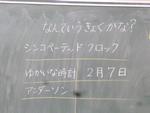 なんていうきょくかな?
シンコペーテッド クロック
ゆかいな時計 2月7日
アンダーソン